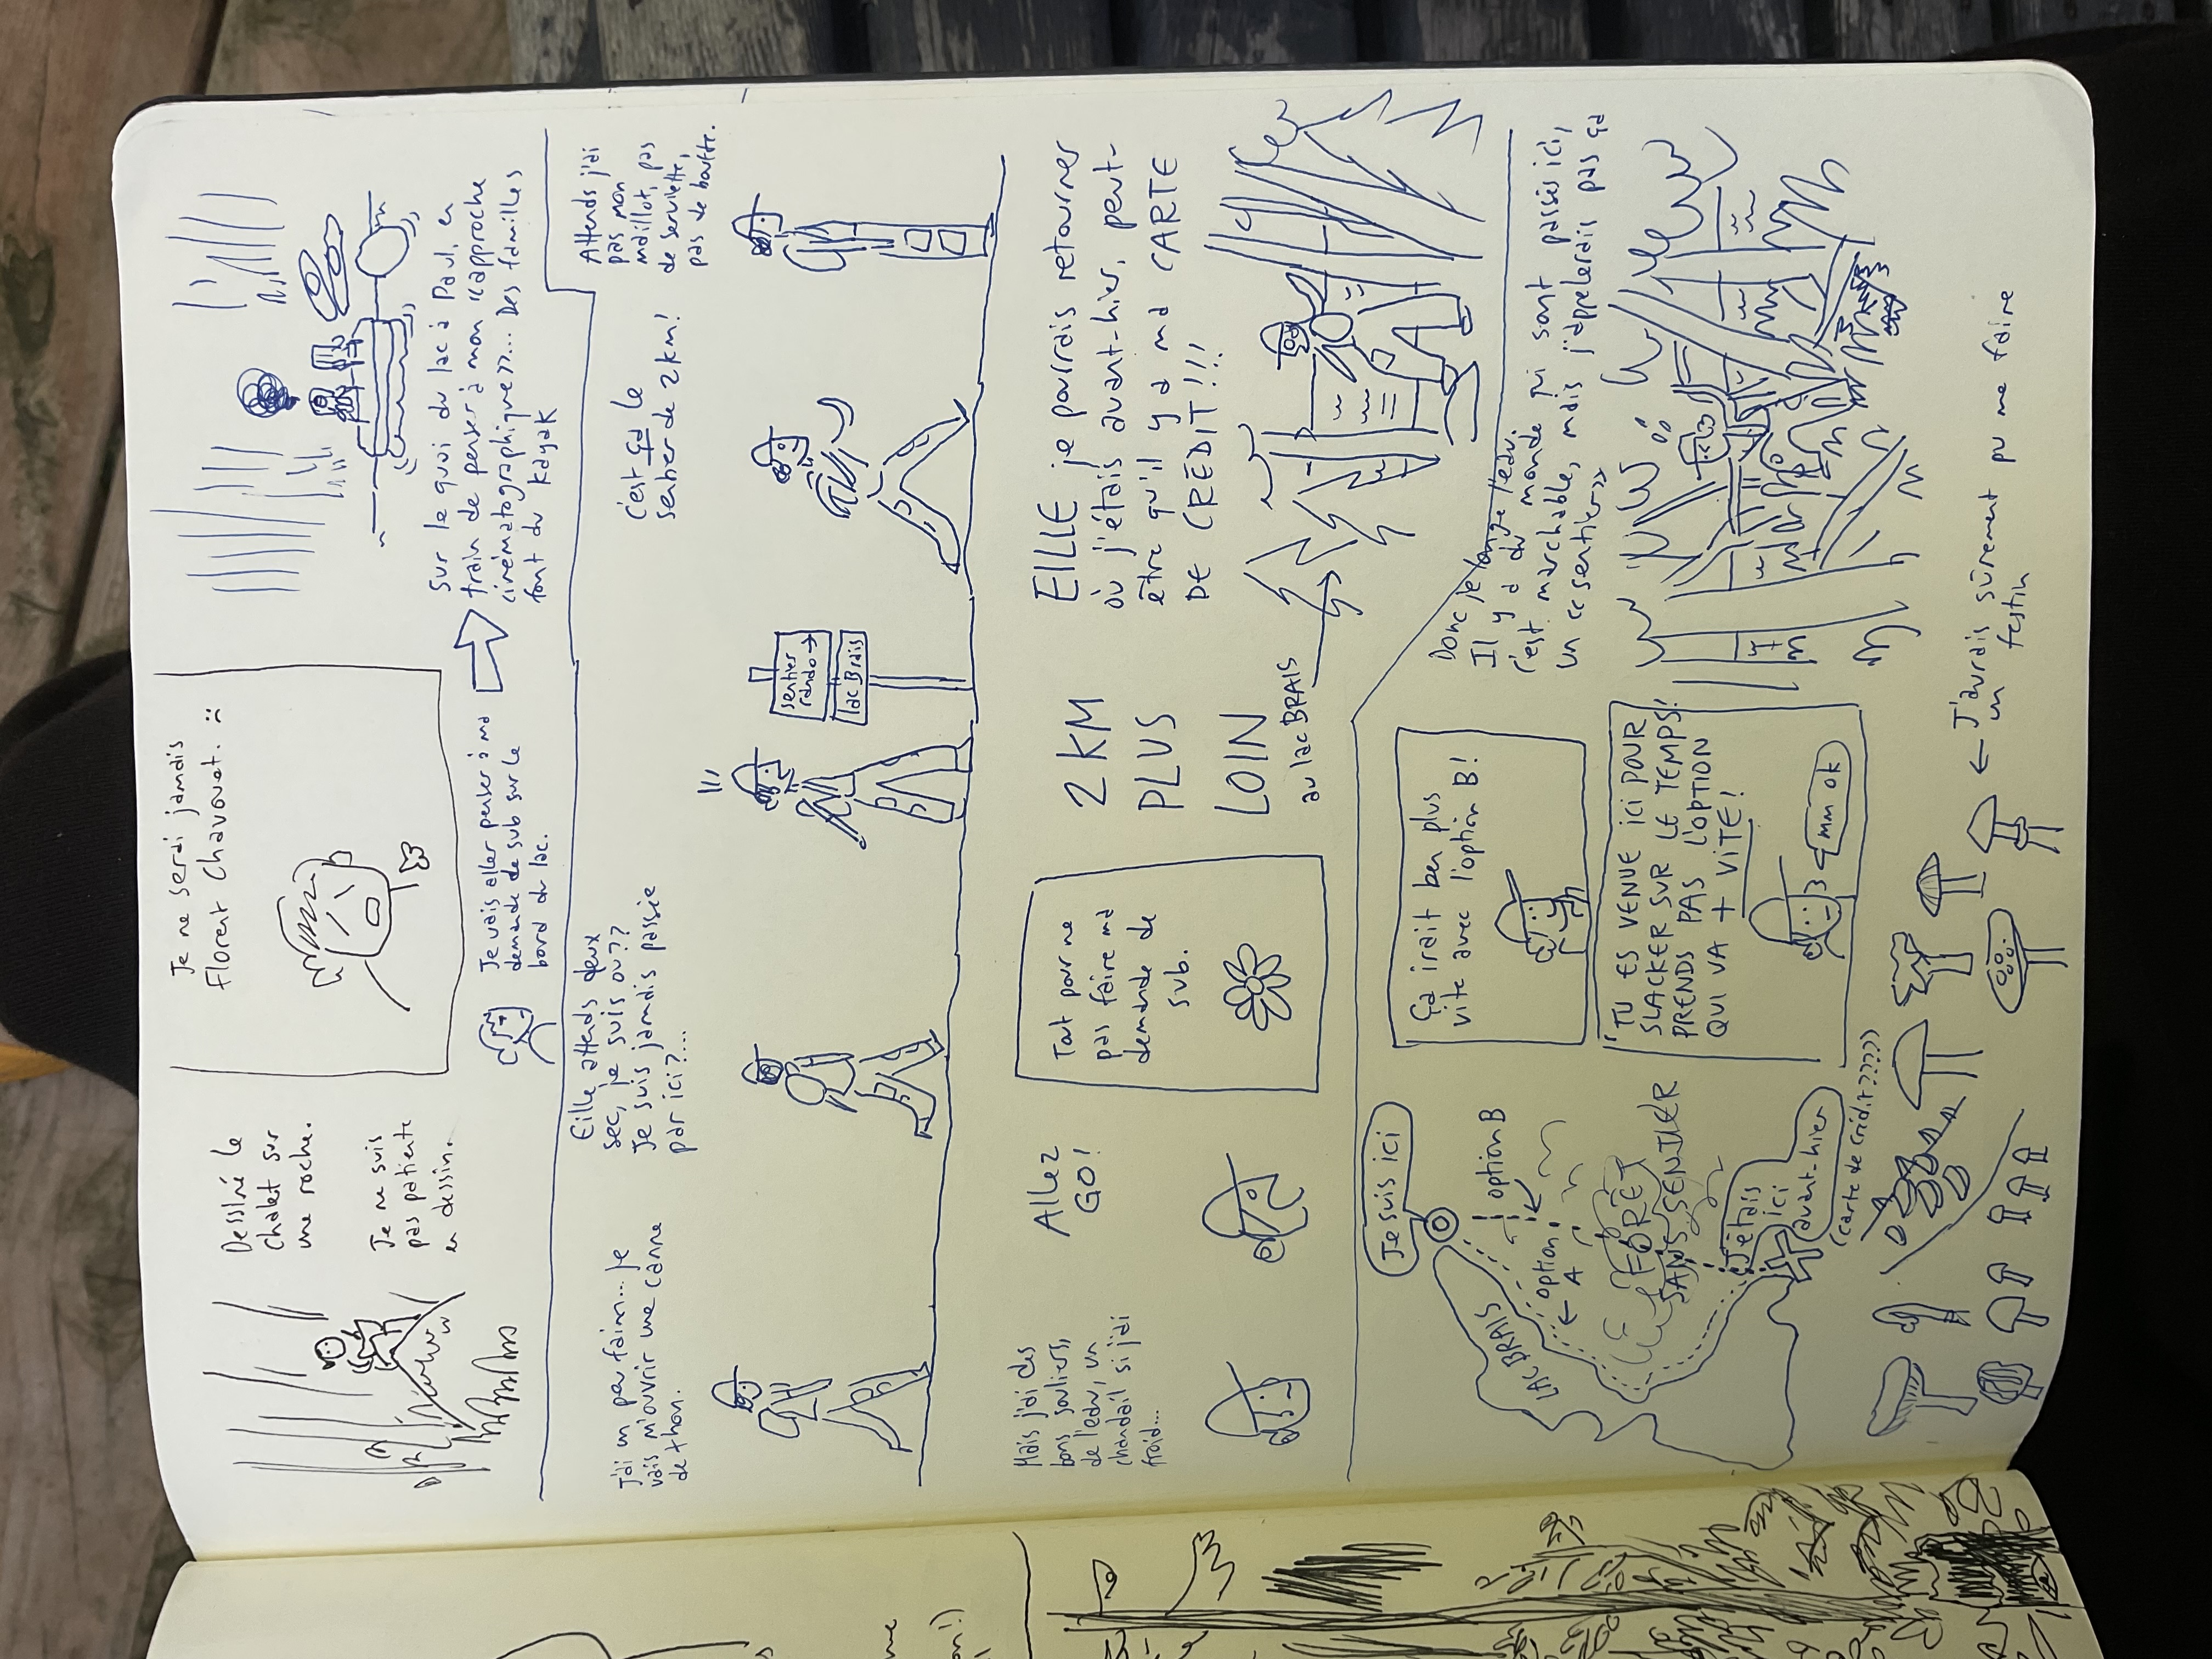 Dessiné le
chalet sur
une roche.
Je ne suis
pas patiente
en dessin.
Je ne serai jamais
Florent Chavouet. :(
Je vais aller penser à ma
demande de sub sur le
bord du lac.
Sur le quai du lac à Paul, en
train de penser à mon "approche
cinématographique"... Des familles
font du kayak
J'ai un peu faim... je
vais m'ouvrir une canne
de thon.
Eille attends deux
sec, je suis où??
Je suis jamais passée
par ici?....
sentier
rando →
lac Brais
C'est ça le
sentier de 2km!
Attends j'ai
pas mon
maillot, pas
de serviette,
pas de bouffe.
Mais j'ai des
bons souliers,
de l'eau, un
chandail si j'ai
froid...
Allez
GO!
Tout pour ne
pas faire ma
demande de
sub.
2 KM
PLUS
LOIN
au lac BRAIS
EILLE je pourrais retourner
où j'étais avant-hier, peut-
être qu'il y a ma CARTE
DE CRÉDIT!!!
Je suis ici
LAC BRAIS
← option
A
option B
FORÊT
SANS SENTIER
J'étais
ici
avant-hier
(carte de crédit?????)
Ça irait ben plus
vite avec l'option B!
TU ES VENUE ICI POUR
SLACKER SUR LE TEMPS!
PRENDS PAS L'OPTION
QUI VA + VITE!
mm ok
Donc je longe l'eau.
Il y a du monde qui sont passés ici,
c'est marchable, mais j'appelerais pas ça
un «sentier»
← J'aurais sûrement pu me faire
un festin